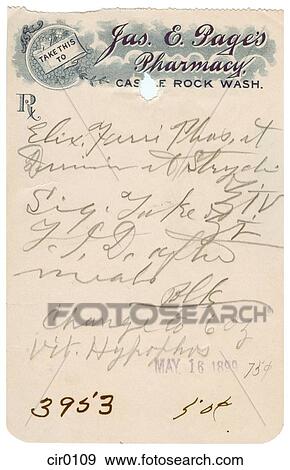 TAKE THIS TO
Jas. E. Page's
Pharmacy,
CASTLE ROCK WASH.
Rx
Elix. Ferri Phos. et
et Strych
Sig. Take
T. I. D. after
meals
Change to
Vit. Hypophos
FOTOSEARCH
MAY 16 1899 75¢
3953 50¢
cir0109 www.fotosearch.com